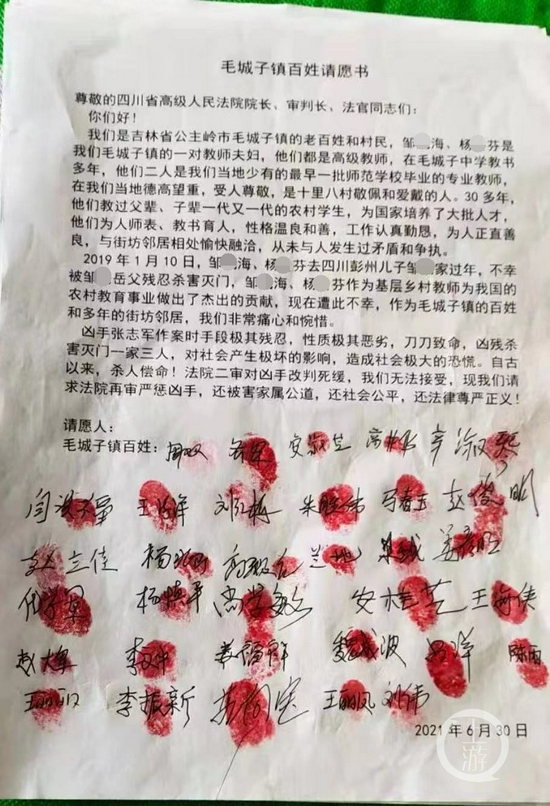 毛城子镇百姓请愿书
尊敬的四川省高级人民法院院长、审判长、法官同志们：
你们好！
我们是吉林省公主岭市毛城子镇的老百姓和村民，邹 海、杨 芬是
我们毛城子镇的一对教师夫妇，他们都是高级教师，在毛城子中学教书
多年，他们二人是我们当地少有的最早一批师范学校毕业的专业教师，
在我们当地德高望重，受人尊敬，是十里八村敬佩和爱戴的人。30 多年，
他们教过父辈、子辈一代又一代的农村学生，为国家培养了大批人才，
他们为人师表、教书育人，性格温良和善，工作认真勤恳，为人正直善
良，与街坊邻居相处愉快融洽，从未与人发生过矛盾和争执。
2019 年 1 月 10 日，邹 海、杨 芬去四川彭州儿子邹 家过年，不幸
被邹 岳父残忍杀害灭门，邹 海、杨 芬作为基层乡村教师为我国的
农村教育事业做出了杰出的贡献，现在遭此不幸，作为毛城子镇的百姓
和多年的街坊邻居，我们非常痛心和惋惜。
凶手张志军作案时手段极其残忍，性质极其恶劣，刀刀致命，凶残杀
害灭门一家三人，对社会产生极坏的影响，造成社会极大的恐慌。自古
以来，杀人偿命！法院二审对凶手改判死缓，我们无法接受，现我们请
求法院再审严惩凶手，还被害家属公道，还社会公平，还法律尊严正义！
请愿人：
毛城子镇百姓： 安淑芝 辛淑贤
刘红梅 马春玉 赵俊明
赵立佳
安桂芝 王海侠
赵大军 魏成波
李振新 王丽凤 刘伟
2021 年 6 月 30 日
上游